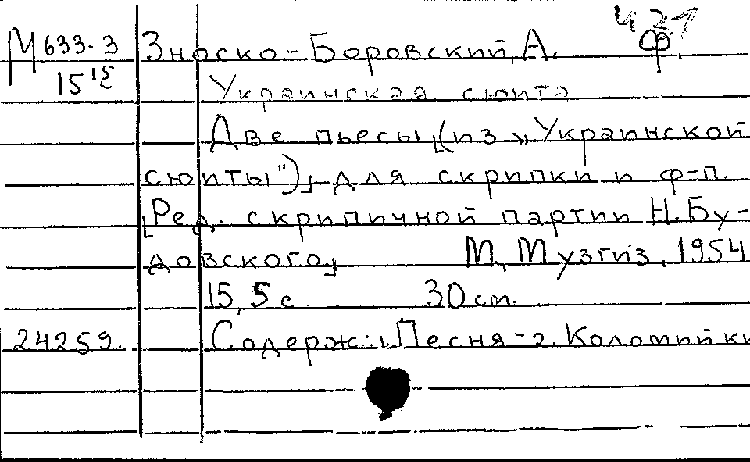 М 633.3 Зноско-Боровский, А. Ф
15 15
Украинская сюита
Две пьесы [(из „Украинской
сюиты")] для скрипки и ф-п.
[Ред. скрипичной партии Н. Бу-
довского] М., Музгиз, 1954
15, 5 с 30 cm.
24259. Содерж: 1. Песня - 2. Коломийки